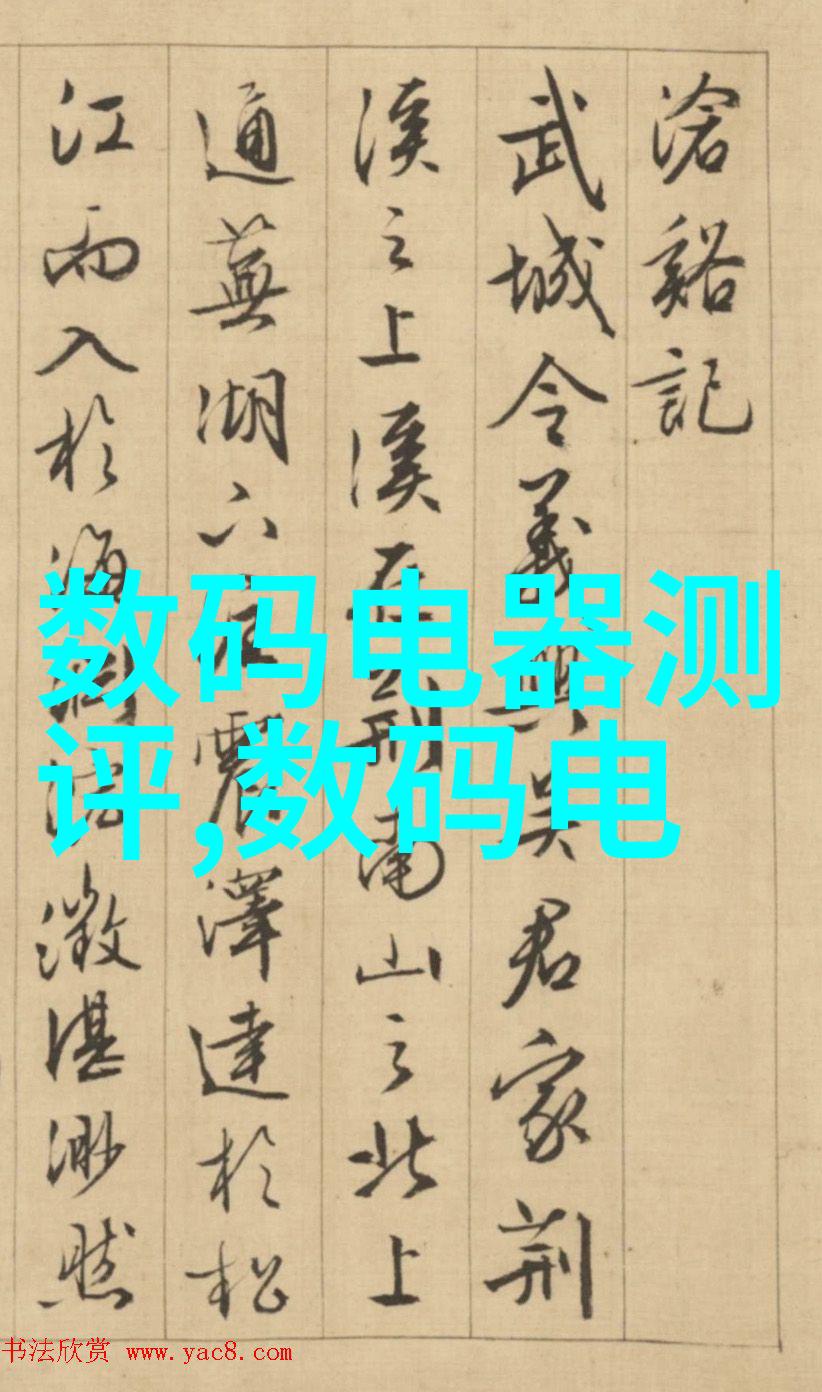 滄谿記
武城令義興吳君家荆
溪之上溪在荆南山之北上
通蕪湖下注震澤達於松
江而入於海 澂湛渺然
数码电器测
评,数码电
书法欣赏 www.yac8.com